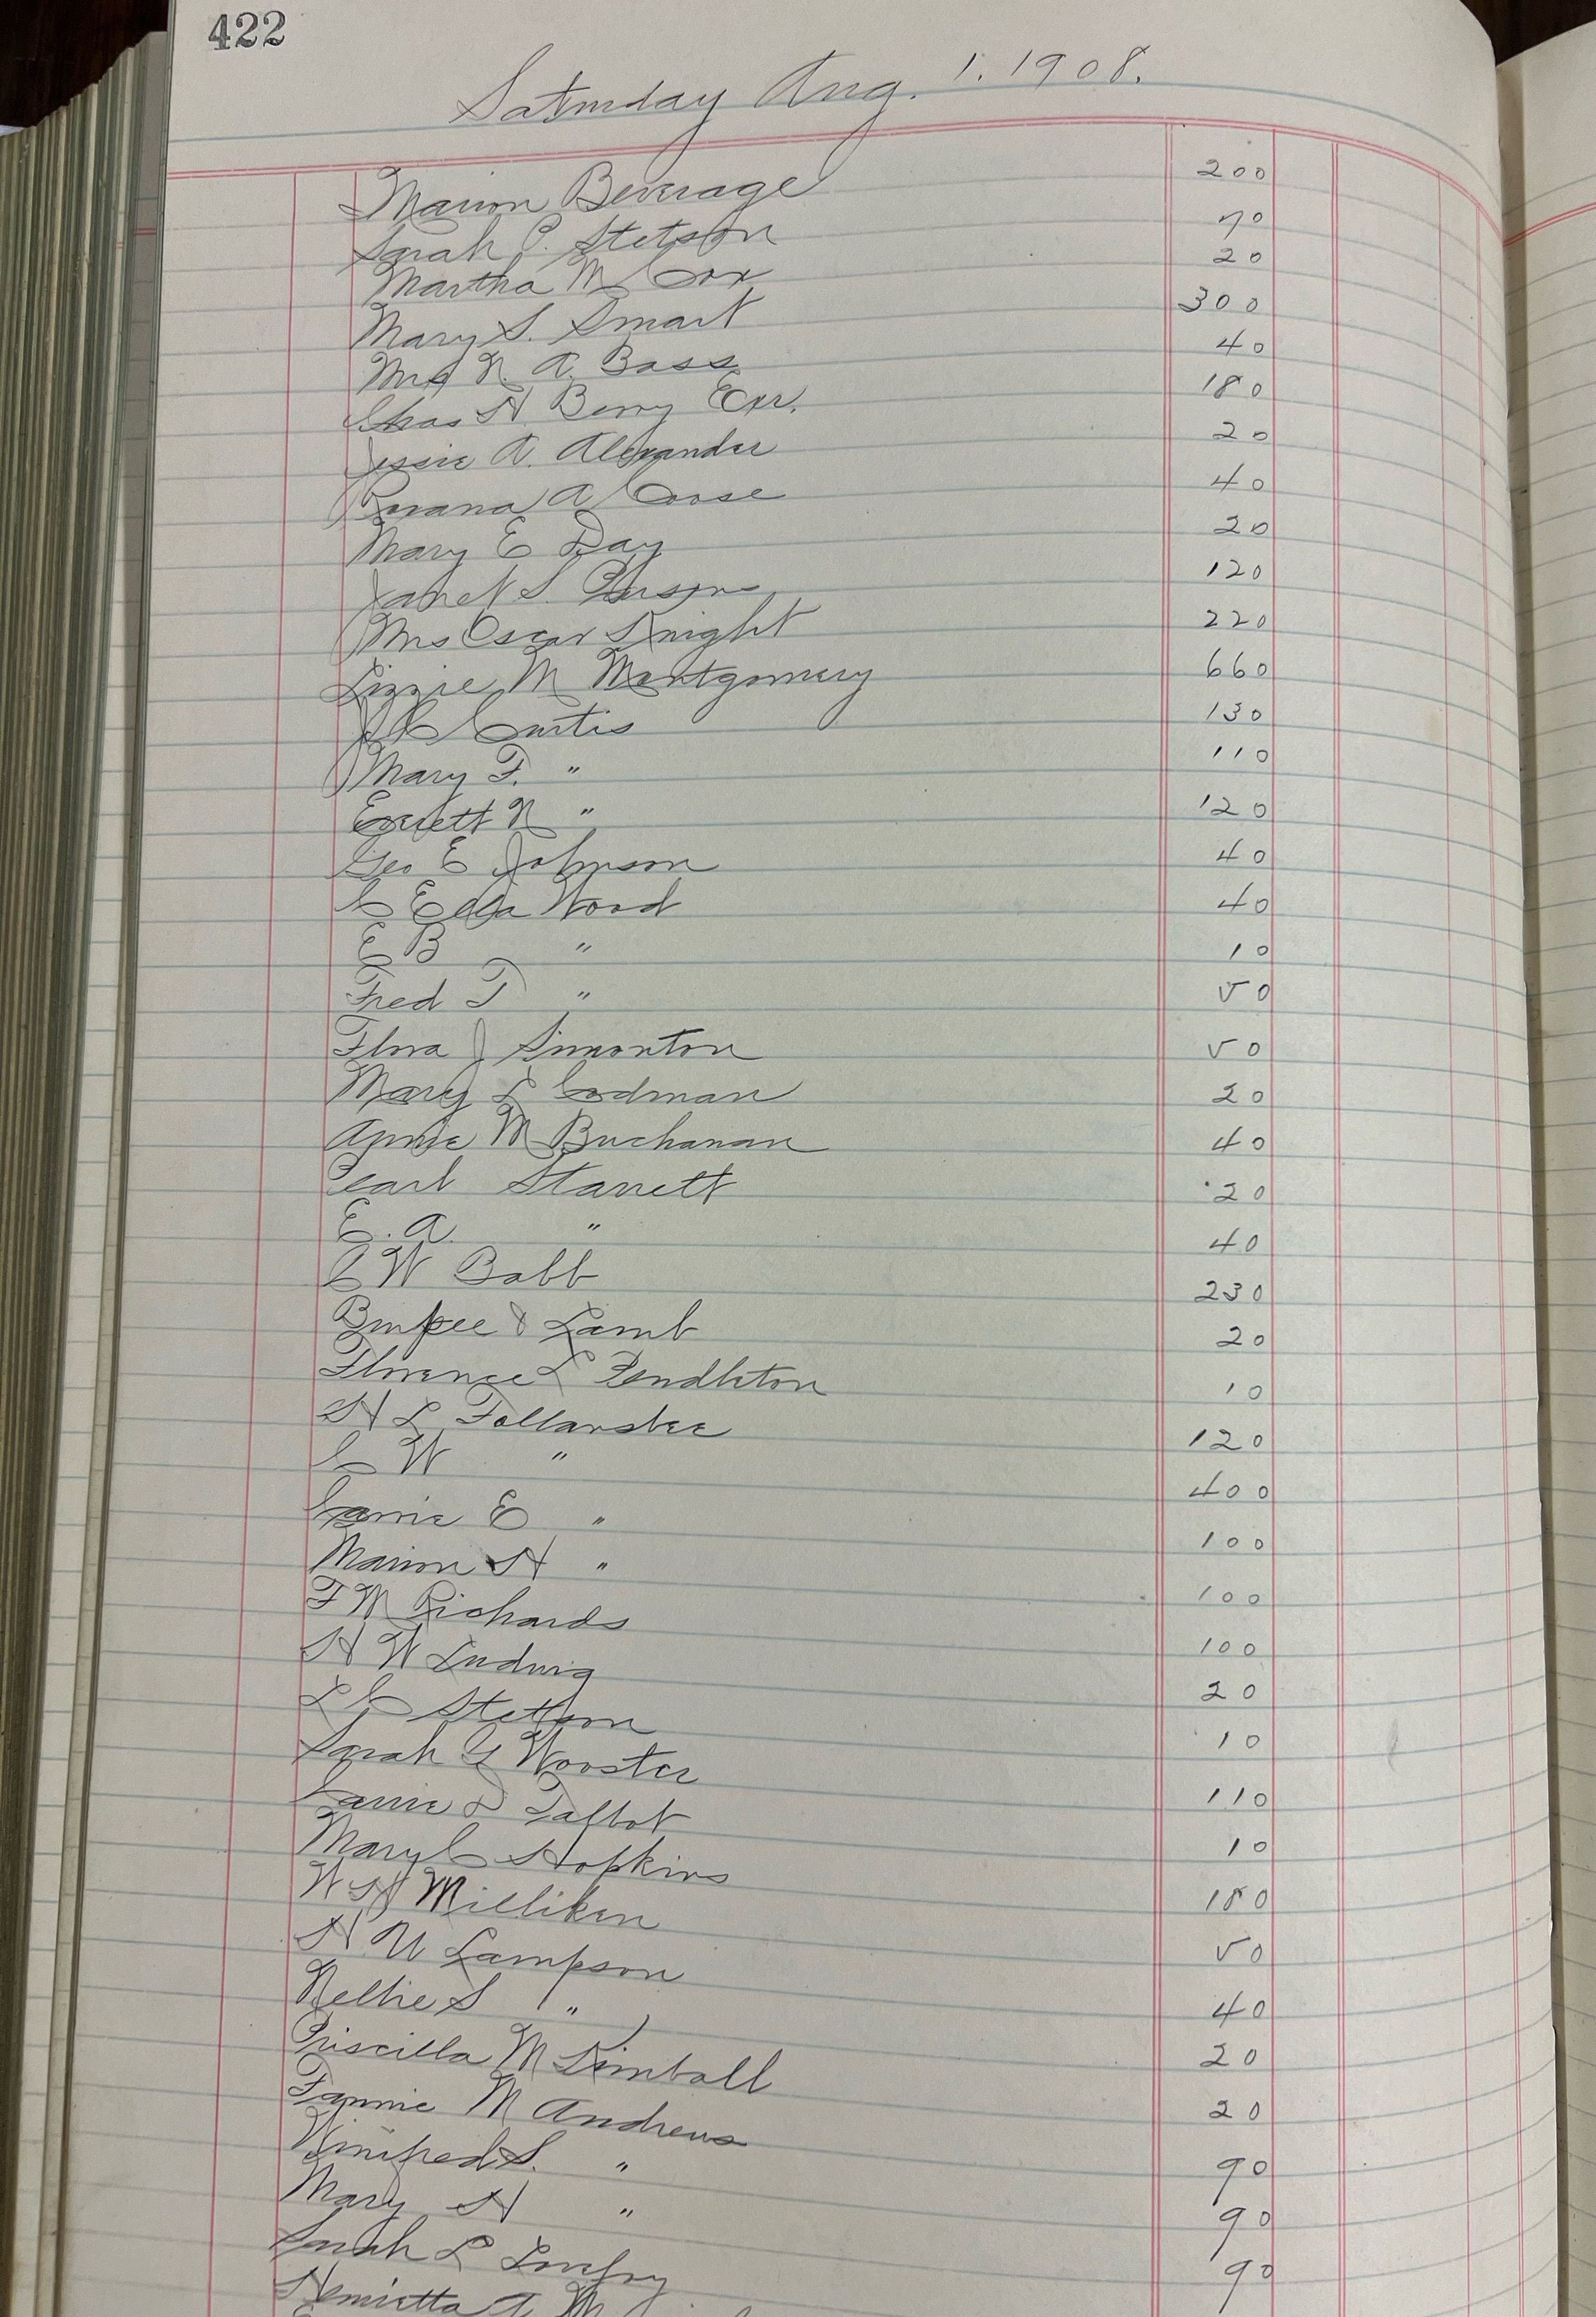 422
Saturday Aug. 1. 1908.
Marion Beverage 200
Sarah P. Stetson 70
Martha M Cox 20
Mary S. Smart 300
Mrs N. A. Bass 40
Chas H Berry Exr. 180
Jessie A. Alexander 20
Roxana A Coose 40
Mary E Day 20
Janet S. Parsons 120
Mrs Oscar Knight 220
Lizzie M Montgomery 660
J C Curtis 130
Mary F. " 110
Everett N " 120
Geo E Johnson 40
C Ella Wood 40
E B " 10
Fred T " 50
Flora J Simonton 50
Mary L Codman 20
Annie M Buchanan 40
Pearl Starrett 20
E. A. " 40
C W Babb 230
Burpee & Lamb 20
Florence L Pendleton 10
H L Follansbee 120
C W " 400
Carrie E " 100
Marion H " 100
F M Richards 100
H W Ludwig 20
L C Stetson 10
Sarah G Wooster 110
Carrie D Talbot 10
Mary C Hopkins 180
W H Milliken 50
H U Lampson 40
Nellie S " 20
Priscilla M Kimball 20
Fannie M Andrews 90
Winifred S. " 90
Mary H " 90
Sarah L Lovejoy
Henrietta A